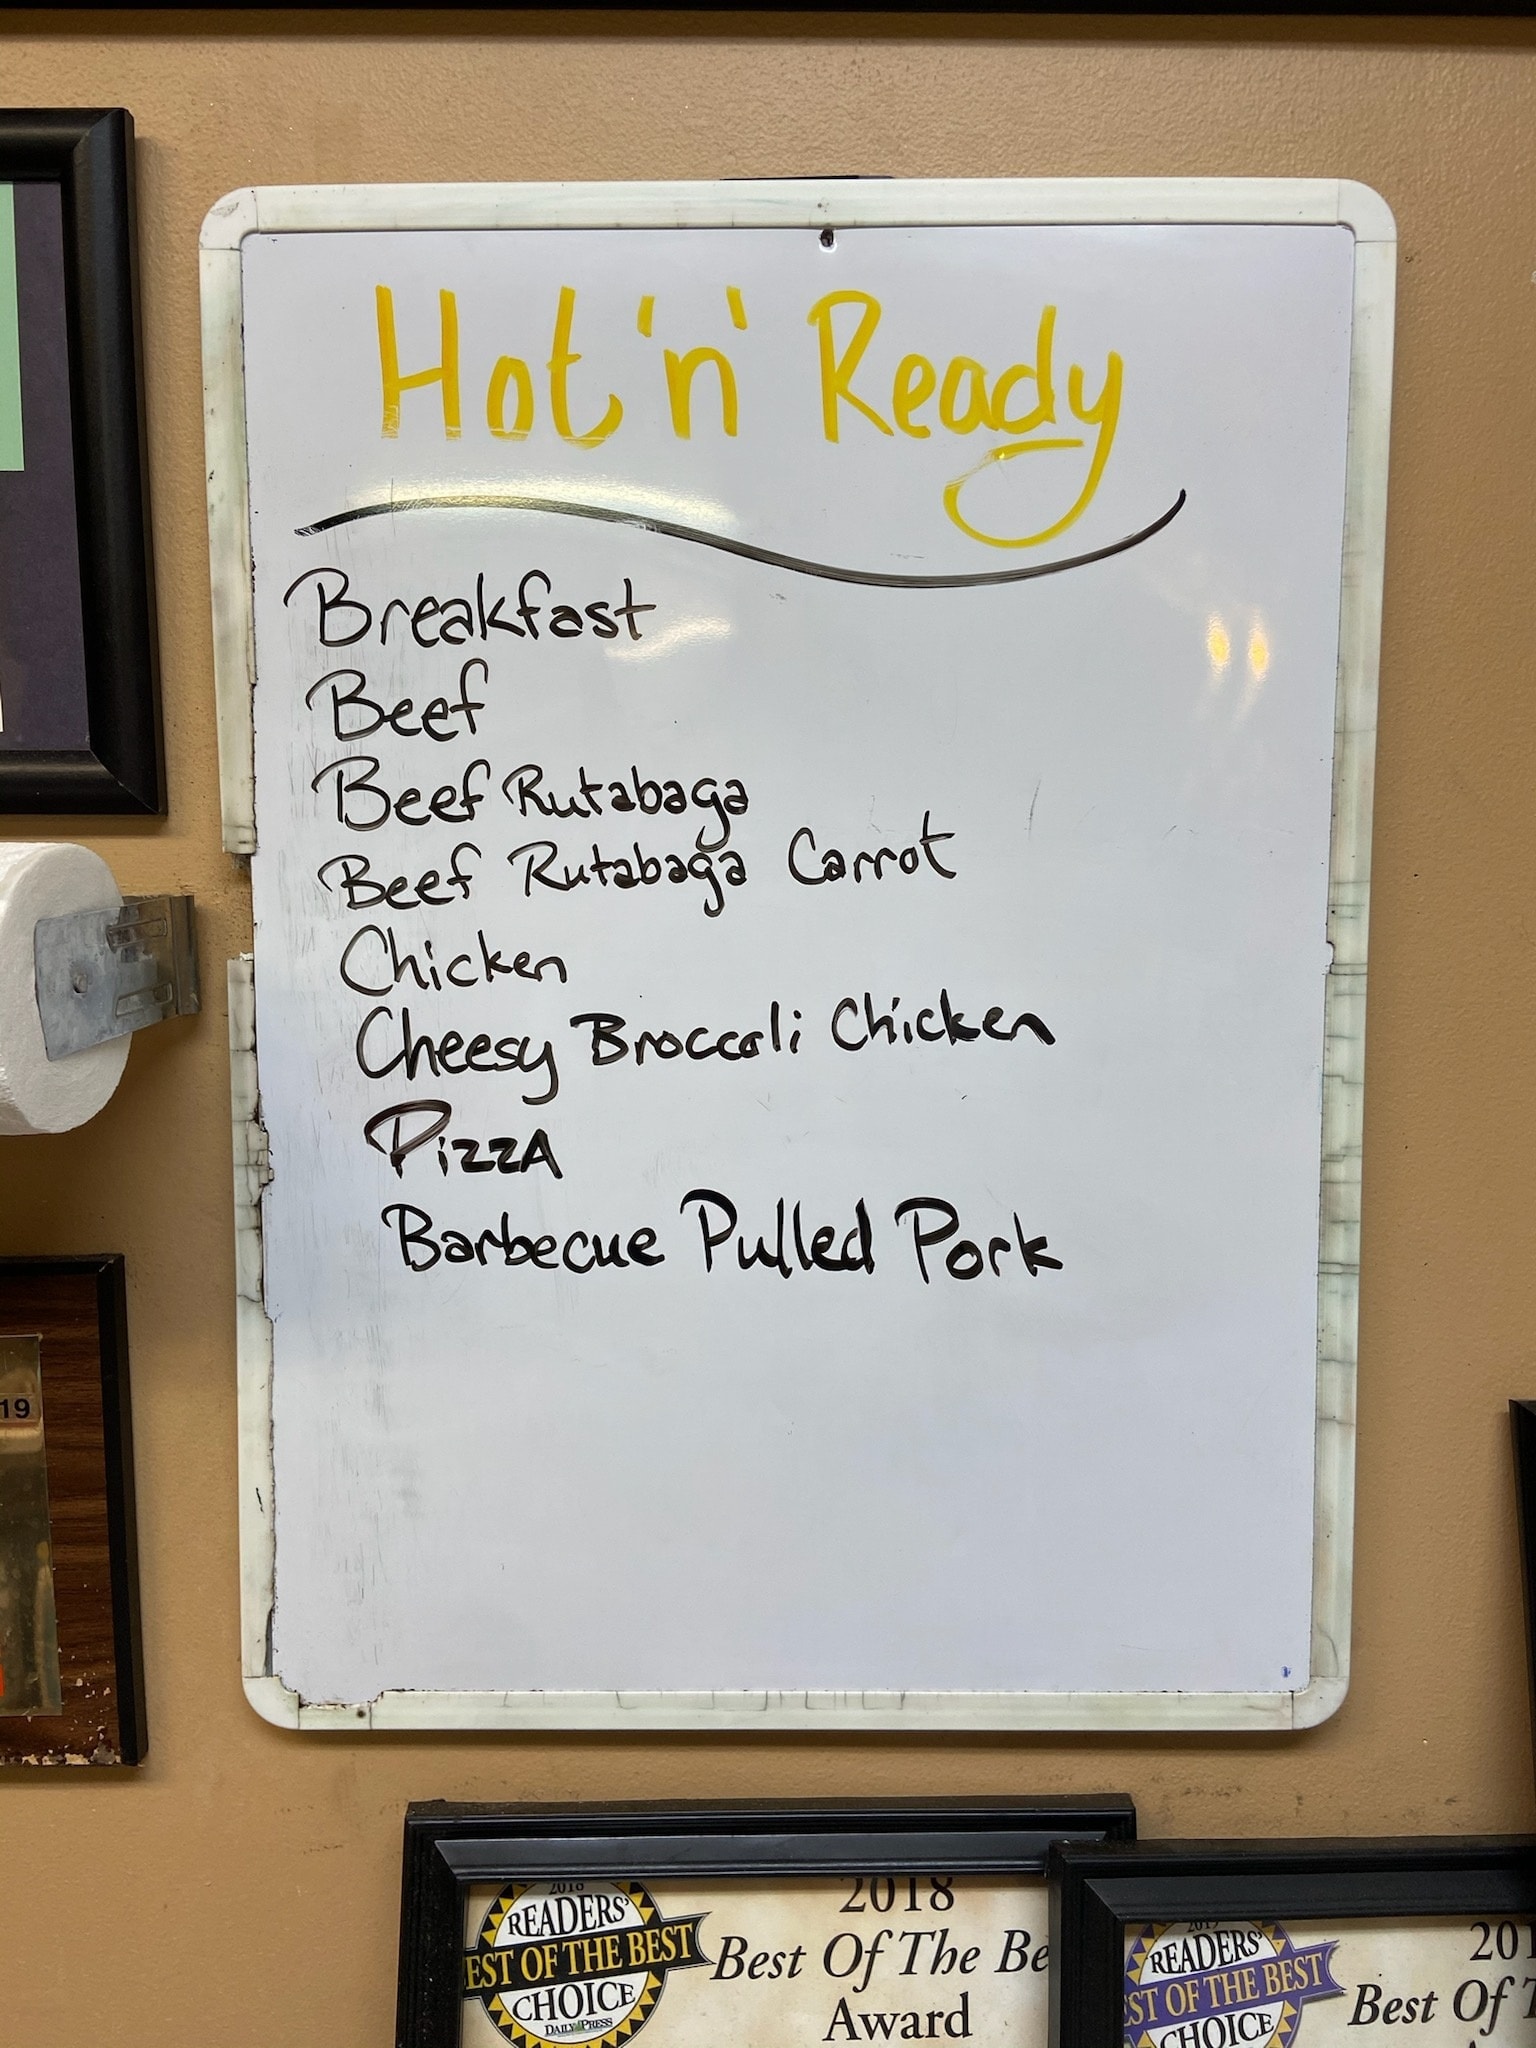 Hot 'n' Ready
Breakfast
Beef
Beef Rutabaga
Beef Rutabaga Carrot
Chicken
Cheesy Broccoli Chicken
PizzA
Barbecue Pulled Pork
19
2018
READERS'
EST OF THE BEST
CHOICE
DAILY PRESS
2018
Best Of The Be
Award
2019
READERS'
ST OF THE BEST
CHOICE
201
Best Of T